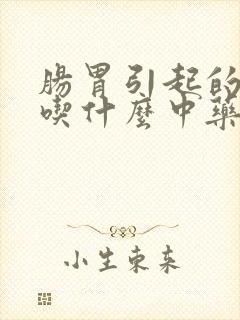 腸胃引起的
喫什麼中藥
小生東來